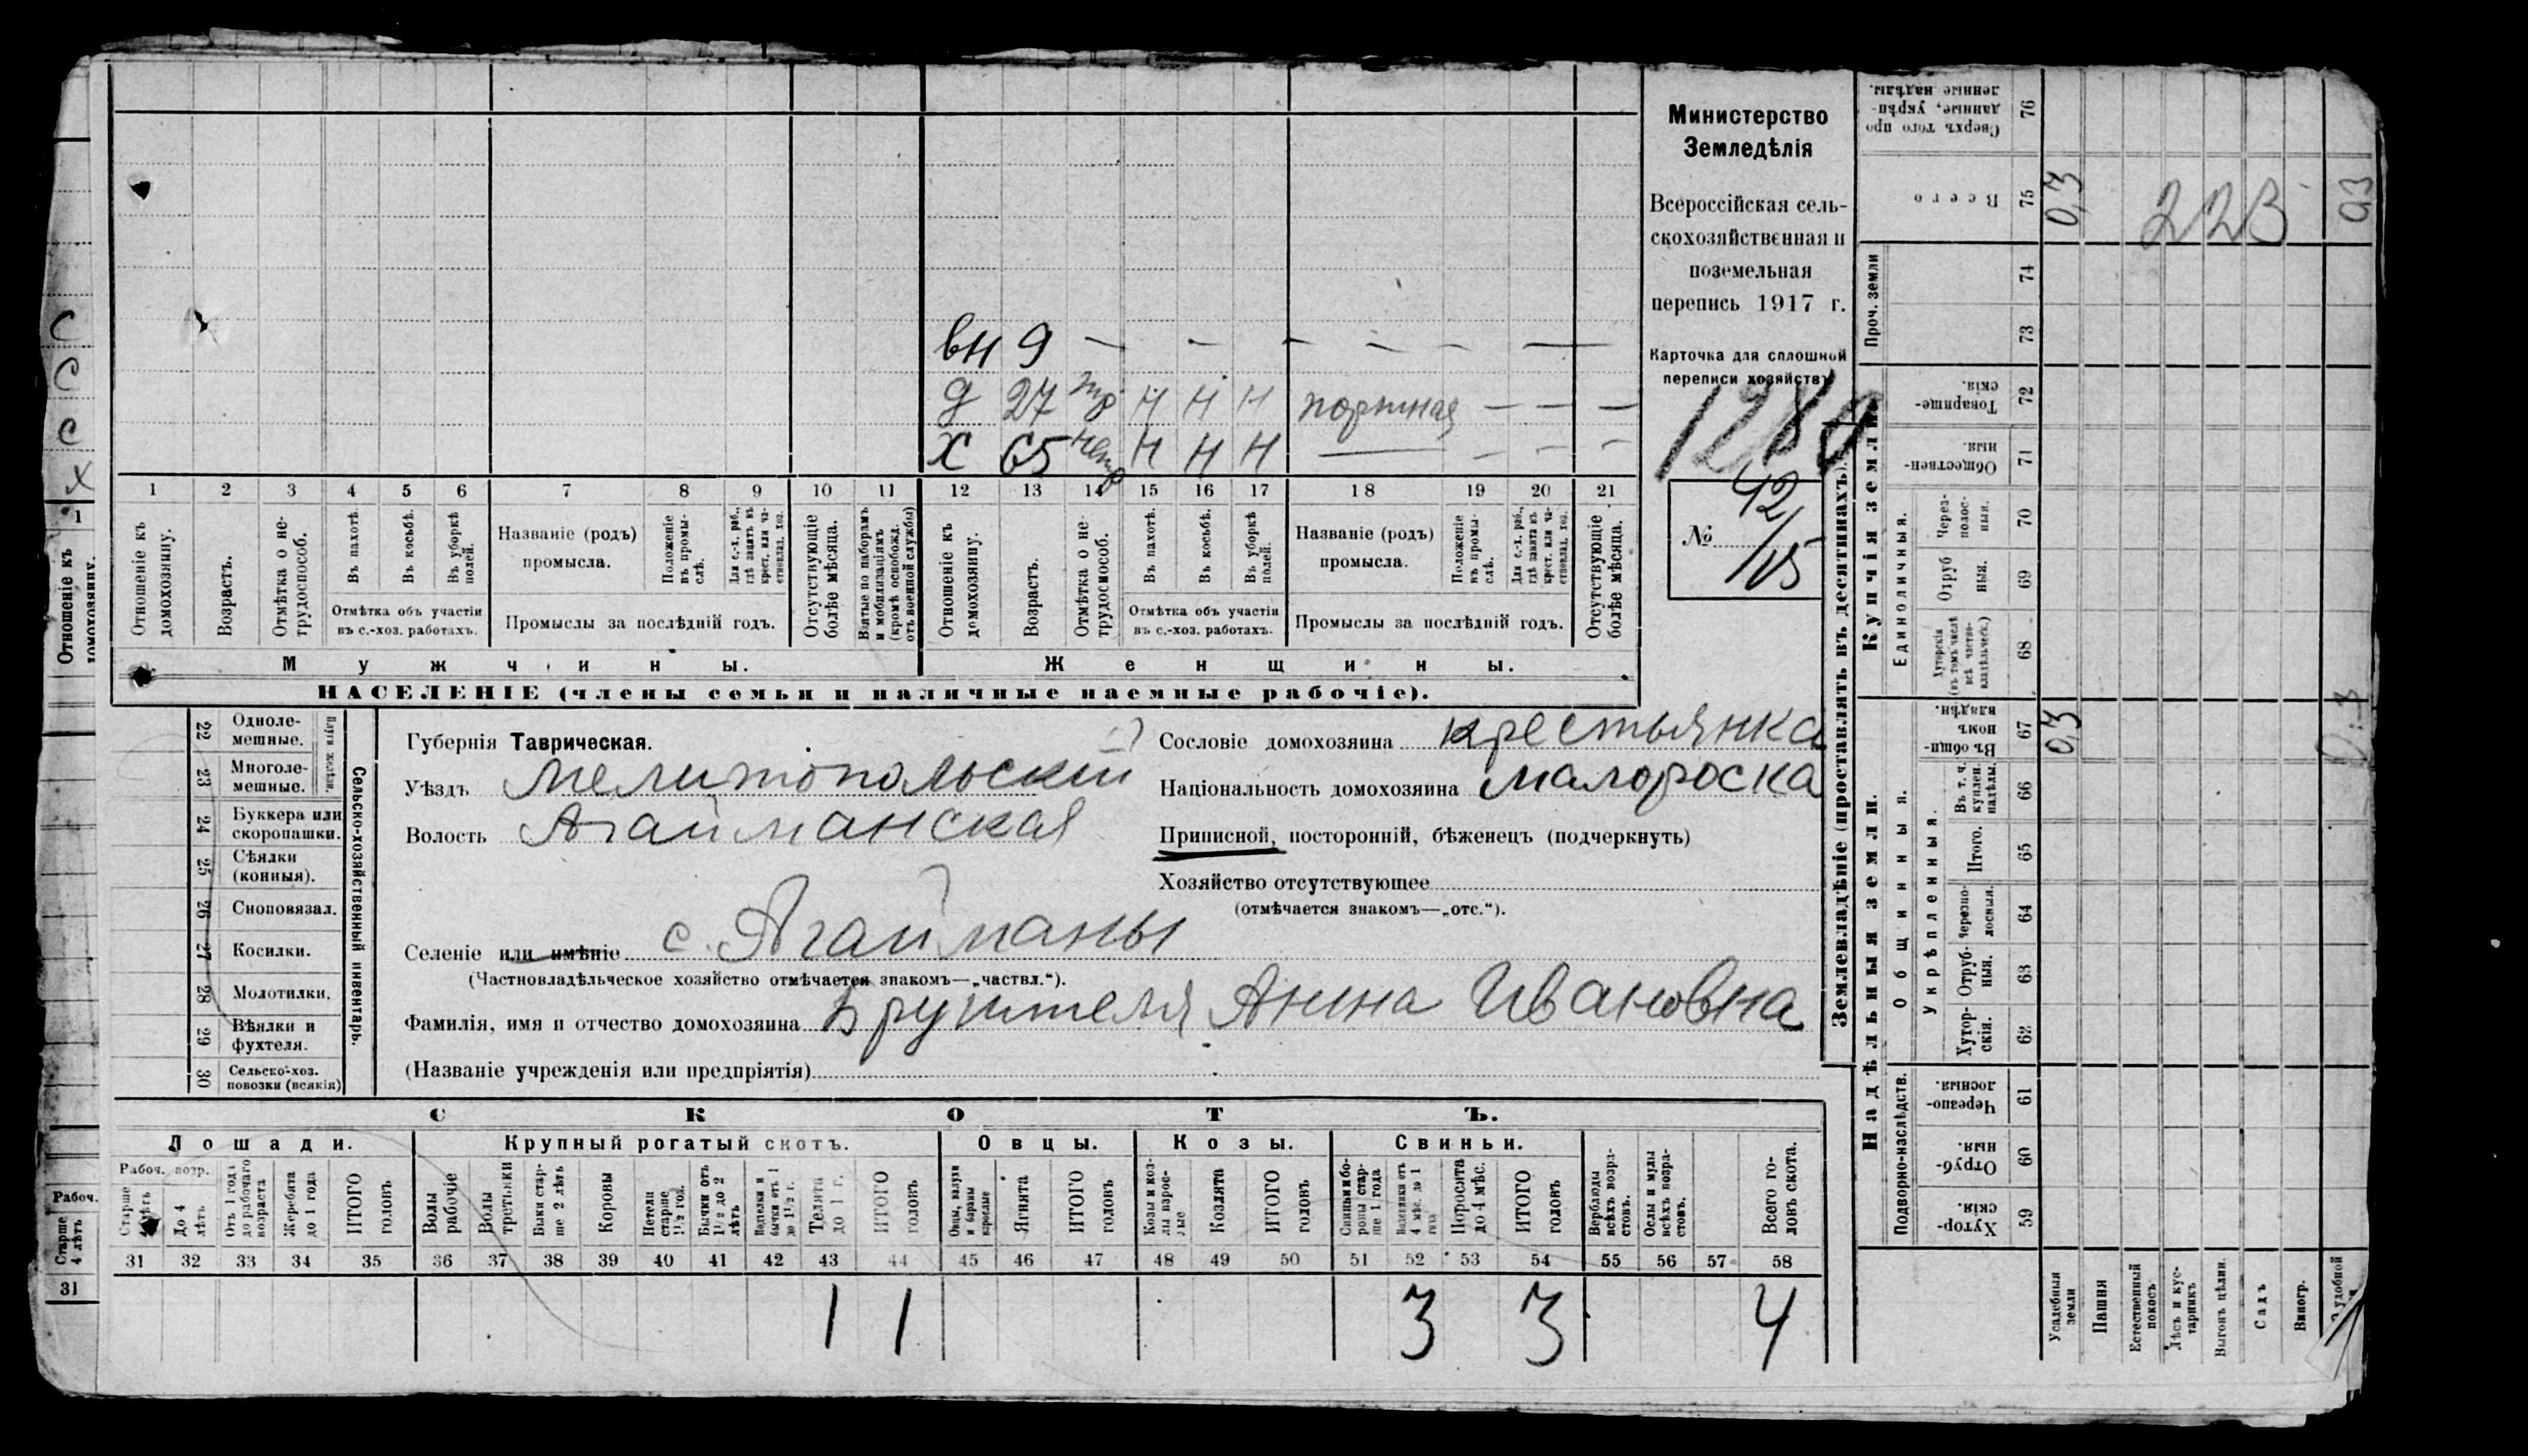 вн 9 — - - - - —
д 27 тр Н Н Н портная — — —
х 65 нетр Н Н Н — - - -
1 2 3 4 5 6 7 8 9 10 11 12 13 14 15 16 17 18 19 20 21
Отношеніе къ домохозяину.
Возрастъ.
Отмѣтка о не-трудоспособ.
Въ пахотѣ.
Въ косьбѣ.
Въ уборкѣ полей.
Отмѣтка объ участіи въ с.-хоз. работахъ.
Названіе (родъ) промысла.
Положеніе въ промы-слѣ.
Для с.-х. раб., гдѣ занятъ въ крест. или ча-стновлад. хоз.
Промыслы за послѣдній годъ.
Отсутствующіе болѣе мѣсяца.
Взятые по наборамъ и мобилизаціямъ (кромѣ освобожд. отъ военной службы)
Отношеніе къ домохозяину.
Возрастъ.
Отмѣтка о не-трудоспособ.
Въ пахотѣ.
Въ косьбѣ.
Въ уборкѣ полей.
Отмѣтка объ участіи въ с.-хоз. работахъ.
Названіе (родъ) промысла.
Положеніе въ промы-слѣ.
Для с.-х. раб., гдѣ занятъ въ крест. или ча-стновлад. хоз.
Промыслы за послѣдній годъ.
Отсутствующіе болѣе мѣсяца.
Мужчины. Женщины.
НАСЕЛЕНІЕ (члены семьи и наличные наемные рабочіе).
Министерство
Земледѣлія
Всероссійская сель-
скохозяйственная и
поземельная
перепись 1917 г.
Карточка для сплошной
переписи хозяйствъ
1280
№ 42/15
С
С
С
Х
1
Отношеніе къ домохозяину.
Сельско-хозяйственный инвентарь.
Плуги желѣзн.
22 Одноле-мешные.
23 Многоле-мешные.
24 Буккера или скоропашки.
25 Сѣялки (конныя).
26 Сноповязал.
27 Косилки.
28 Молотилки.
29 Вѣялки и фухтеля.
30 Сельско-хоз. повозки (всякія)
Губернія Таврическая.
Уѣздъ Мелитопольскій
Волость Агайманская
Селеніе или имѣніе с. Агайманы
(Частновладѣльческое хозяйство отмѣчается знакомъ—„частвл.“).
Сословіе домохозяина крестьянка
Національность домохозяина малороска
Приписной, посторонній, бѣженецъ (подчеркнуть)
Хозяйство отсутствующее
(отмѣчается знакомъ—„отс.“).
Фамилія, имя и отчество домохозяина Анна Ивановна
(Названіе учрежденія или предпріятія)
СКОТЪ.
Лошади. Крупный рогатый скотъ. Овцы. Козы. Свиньи.
Рабоч. возр.
Старше 4 лѣтъ
До 4 лѣтъ
Отъ 1 года до рабочаго возраста
Жеребята до 1 года
ИТОГО головъ
Волы рабочіе
Волы третьяки
Быки стар-ше 2 лѣтъ
Коровы
Нетели старше 1½ год.
Бычки отъ 1½ до 2 лѣтъ
Телята до 1 г.
ИТОГО головъ
Овцы, валухи и бараны взрослые
Ягнята
ИТОГО головъ
Козы и коз-лы взрос-лые
Козлята
ИТОГО головъ
Свиньи бо-ровы стар-ше 1 года
Поросята до 4 мѣс.
ИТОГО головъ
Верблюды всѣхъ возра-стовъ.
Ослы и мулы всѣхъ возра-стовъ.
Всего го-ловъ скота.
31 32 33 34 35 36 37 38 39 40 41 42 43 44 45 46 47 48 49 50 51 52 53 54 55 56 57 58
1 1 3 3 4
Рабоч.
Старше 4 лѣтъ
31
Землевладѣніе (проставлять въ десятинахъ).
Купчія земли.
Надѣльныя земли.
Сверхъ того про данные, укрѣп-ленные надѣлы. 76
Всего 75 0,3 223 0,3
Проч. земли 74
73
Товарище-скія. 72
Обществен-ныя. 71
Единоличныя.
Через-полос-ныя. 70
Отруб ныя. 69
Хуторскія (въ томъ числѣ всѣ частно-владѣльческ.) 68
Общинныя.
Въ общи-номъ владѣн. 67 0,3
Укрѣпленныя.
Въ т. ч. куплен. надѣлы. 66
Итого. 65
Черезпо-лосныя. 64
Отруб-ныя. 63
Хутор-скія. 62
Подворно-наслѣдств.
Черезпо-лосныя. 61
Отруб-ныя. 60
Хутор-скія. 59
Усадебныя земли
Пашня
Естественный покосъ
Лѣсъ и кус-тарникъ
Выгонъ цѣлин.
Садъ
Виногр.
удобной